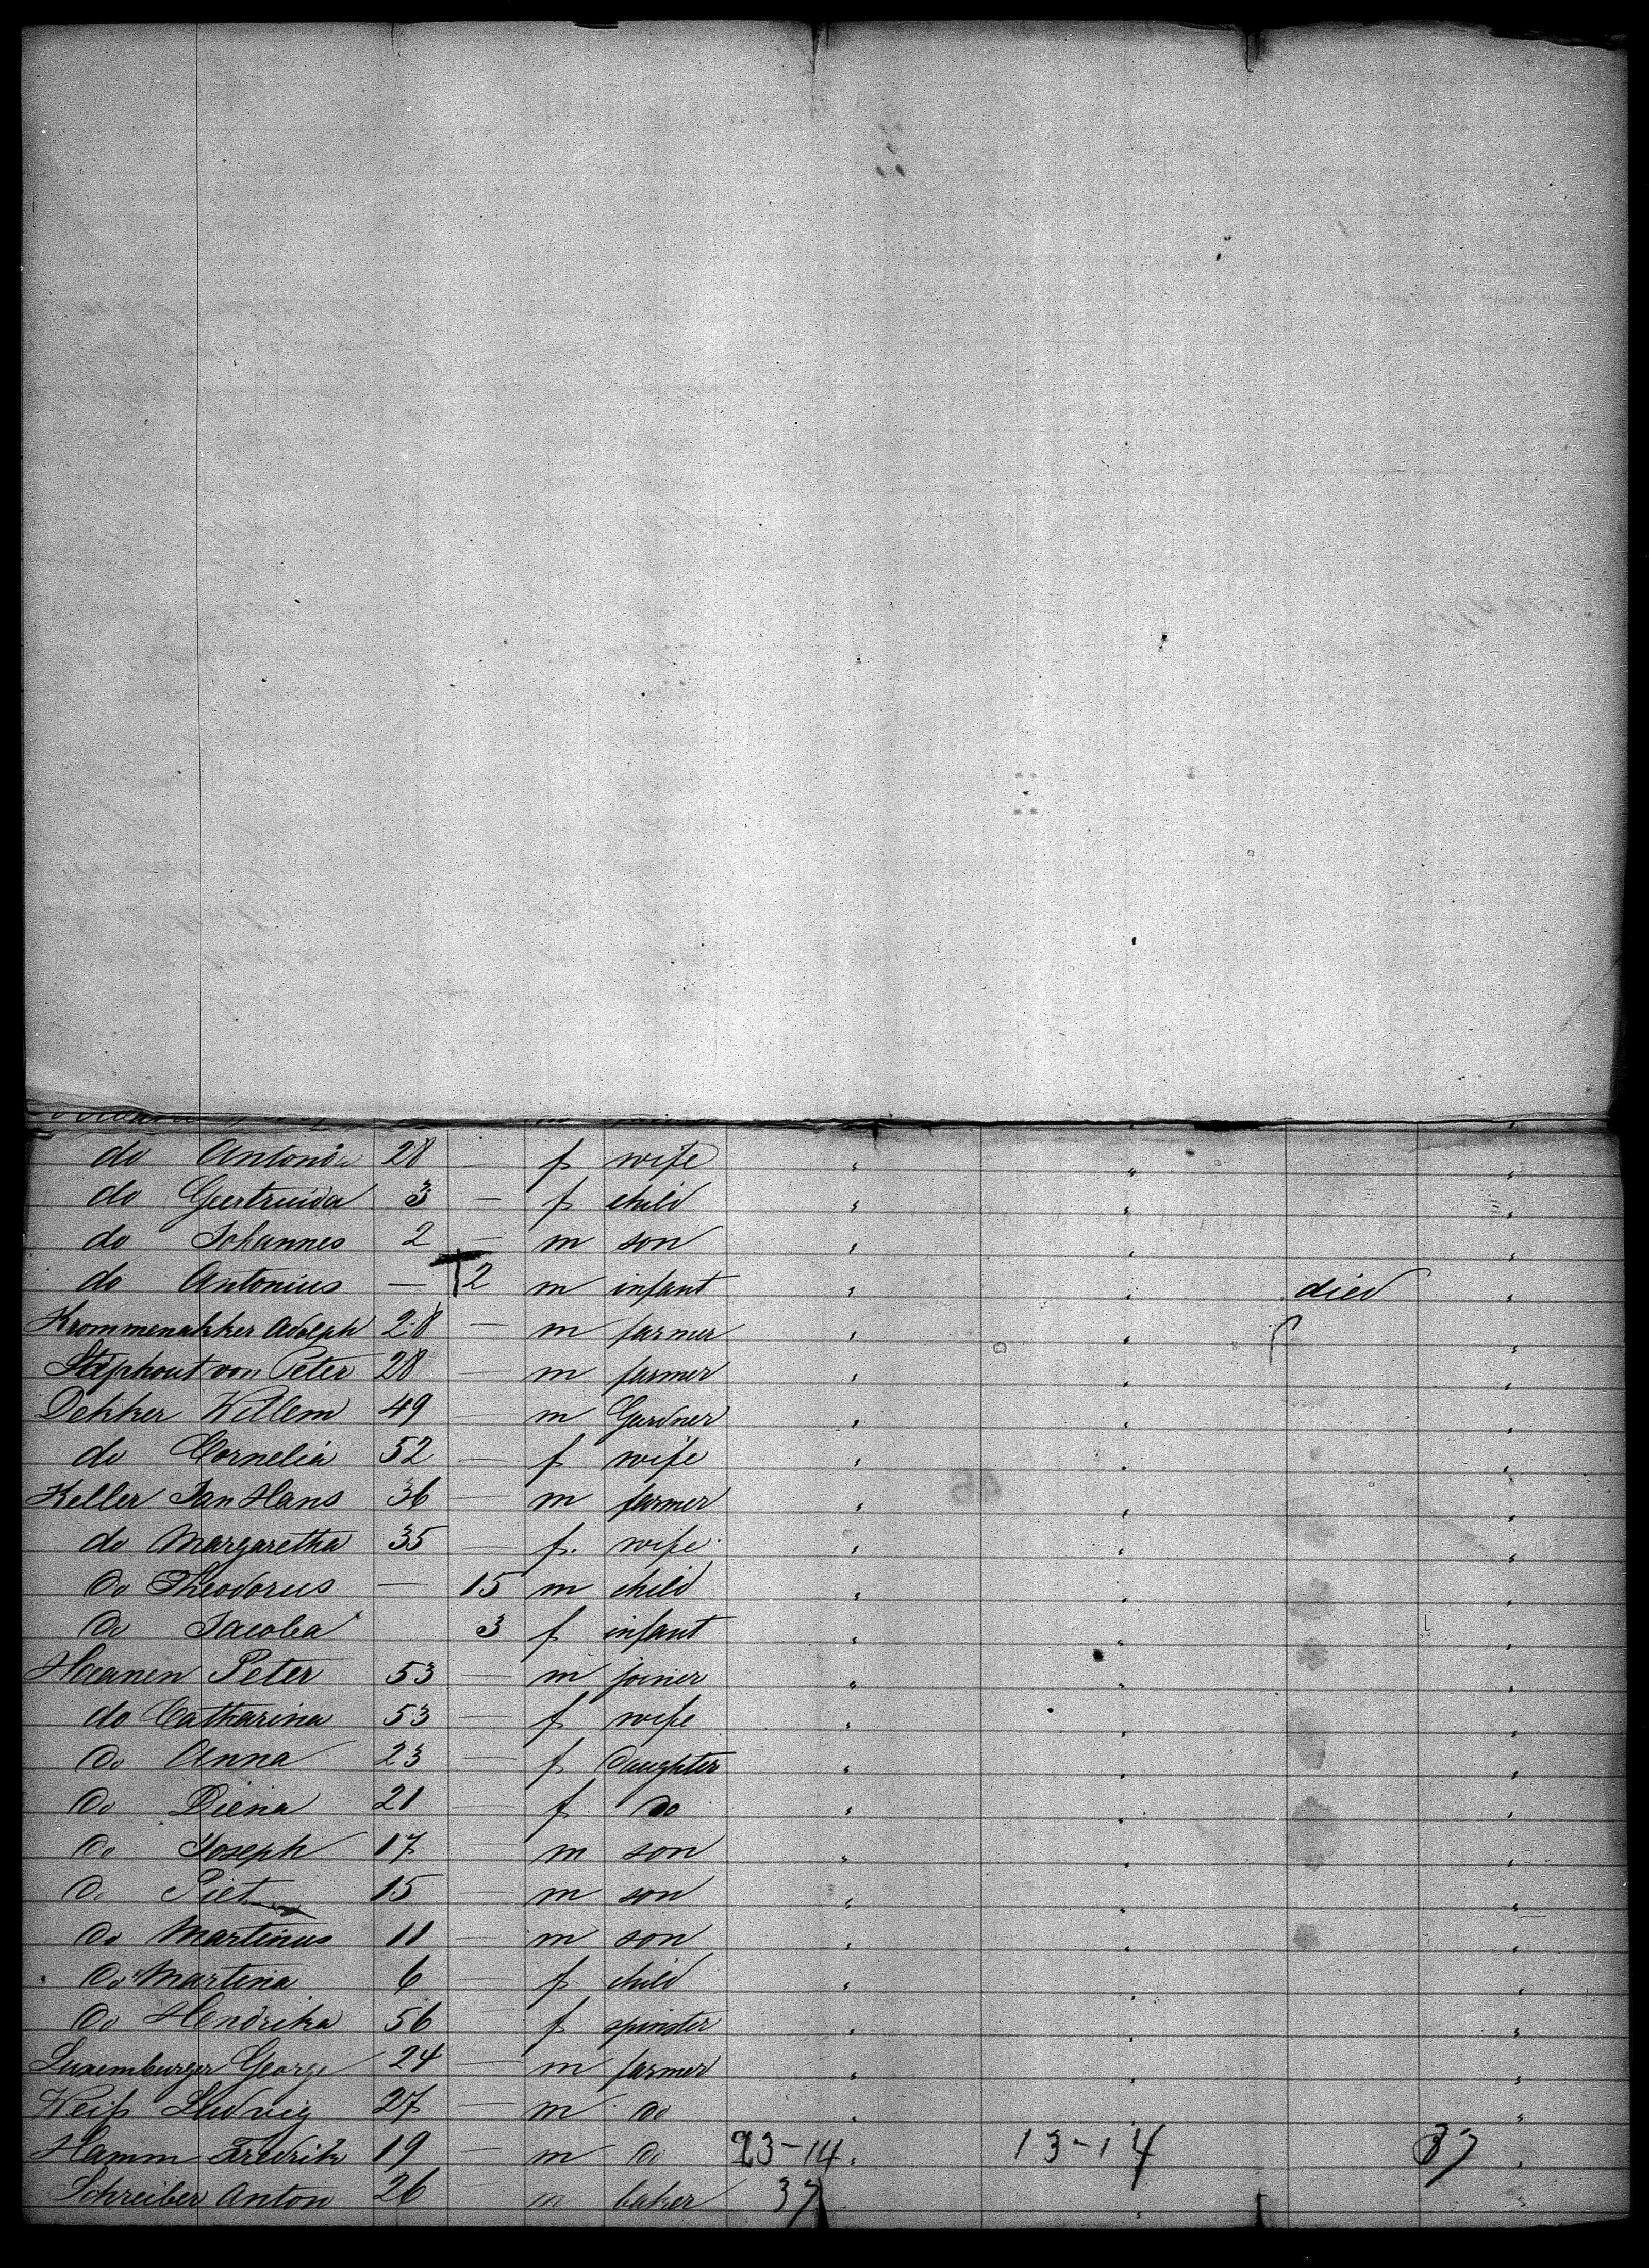 do Antonia 28 — f wife " " "
do Geertruida 3 — f child " " "
do Johannes 2 — m son " " "
do Antonius — 2 m infant " " died "
Krommenakker Adolph 28 — m farmer " " "
von Peter 28 — m farmer " " "
Dekker Willem 49 — m Gardner " " "
do Cornelia 52 — f wife " " "
Keller Jan Hans 36 — m farmer " " "
do Margaretha 35 — f. wife " " "
do Theodorus — 15 m child " " "
do Jacoba 3 f infant " " "
Haanen Peter 53 — m joiner " " "
do Catharina 53 — f wife " " "
do Anna 23 — f daughter " " "
do Diena 21 — f do " " "
do Joseph 17 — m son " " "
do Piet 15 — m son " " "
do Martinus 11 — m son " " "
do Martina 6 — f child " " "
do Hendrika 56 — f spinster " " "
Luxemburger George 24 — m farmer " " "
Weiß Ludvig 27 — m do " " "
Hamm Fredrik 19 — m do 23-14 " 13-14 37 "
Schreiber Anton 26 — m baker 37 " "